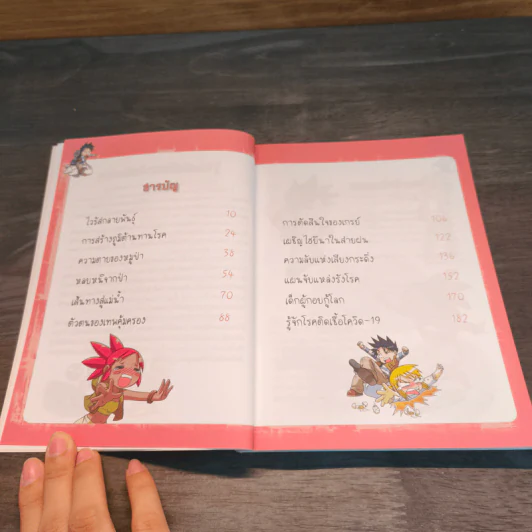 สารบัญ
ไวรัสกลายพันธุ์ 10
การสร้างภูมิต้านทานโรค 24
ความตายของหมูป่า 38
หลบหนีจากป่า 54
เส้นทางสู่แม่น้ำ 70
ตัวตนของเทพคุ้มครอง 88
การตัดสินใจของเกรย์ 104
เผชิญไฮยีน่าในสายฝน 122
ความลับแห่งเสียงกระดิ่ง 136
แผนจับแหล่งรังโรค 152
เด็กผู้กอบกู้โลก 170
รู้จักโรคติดเชื้อโควิด-19 182